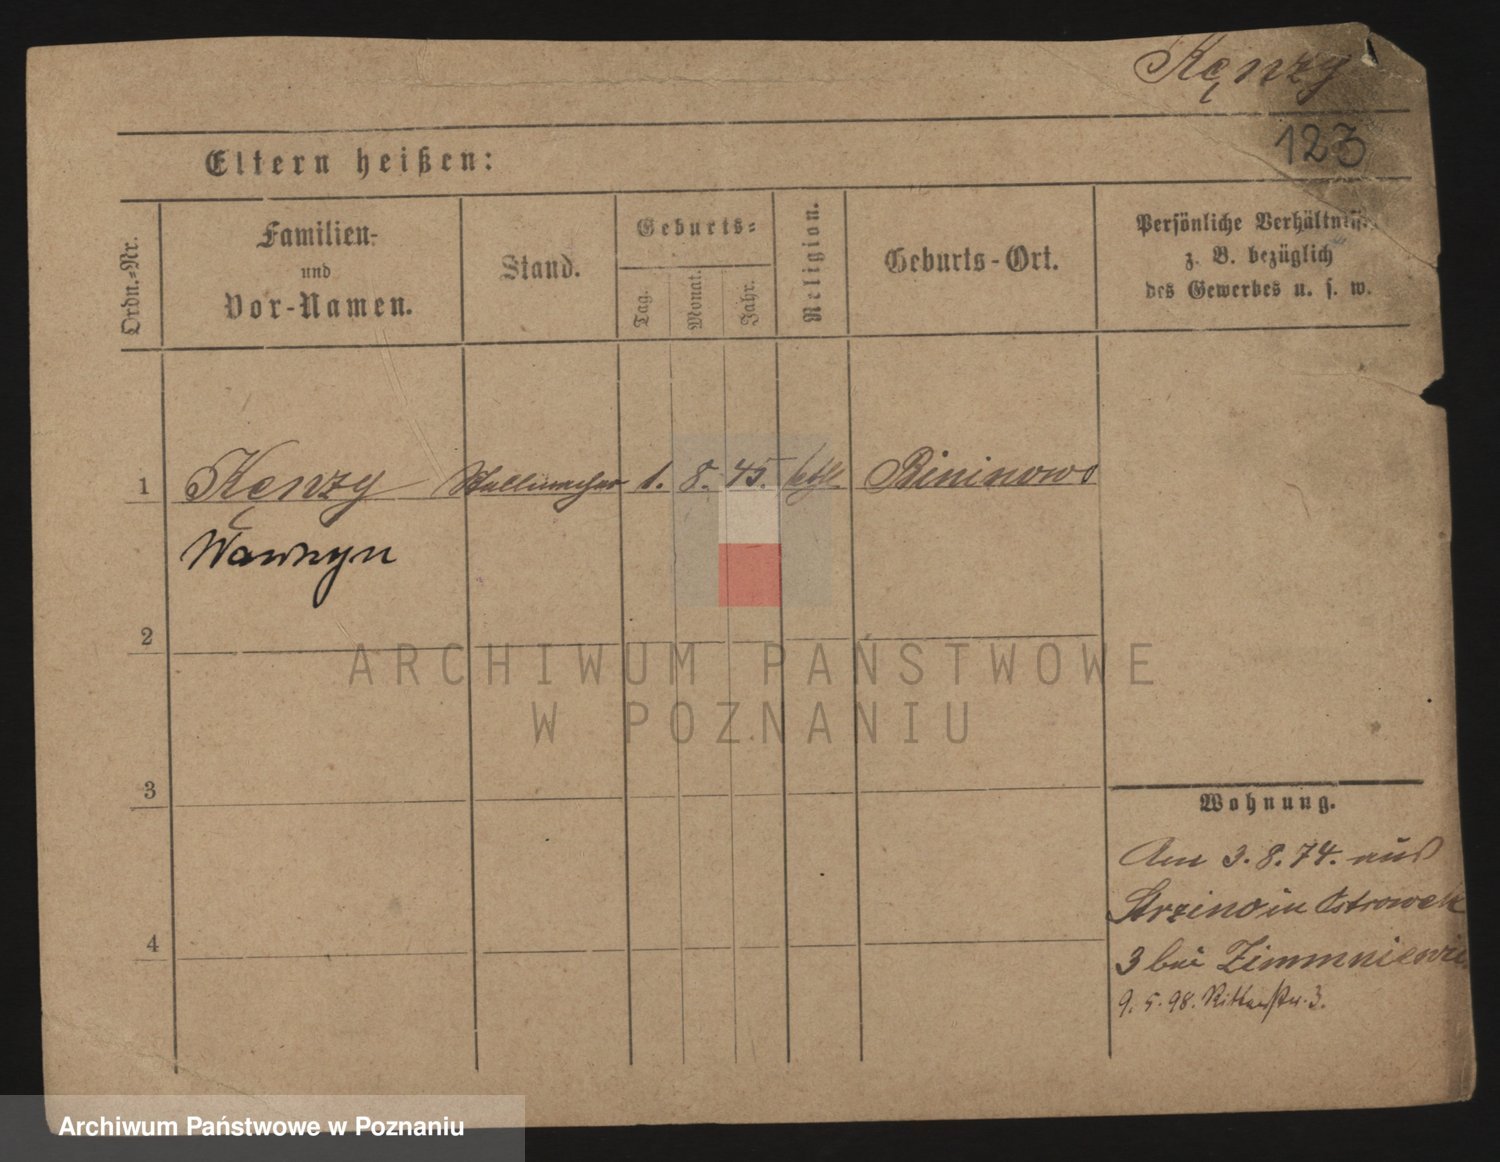 Kęnzy
123
Eltern heißen:
Ordn.-Nr.
Familien-
und
Vor-Namen.
Stand.
Geburts-
Tag.
Monat.
Jahr.
Religion.
Geburts-Ort.
Persönliche Verhältniss
z. B. bezüglich
des Gewerbes u. s. w.
1 Kęnzy Stellmacher 1. 8. 45. kth. Bininowo
Wawrzyn
2
3
4
Wohnung.
Am 3. 8. 74. aus
in Ostrowek
3 bei
9. 5. 98. Ritterstr. 3.
ARCHIWUM PAŃSTWOWE
W POZNANIU
Archiwum Państwowe w Poznaniu